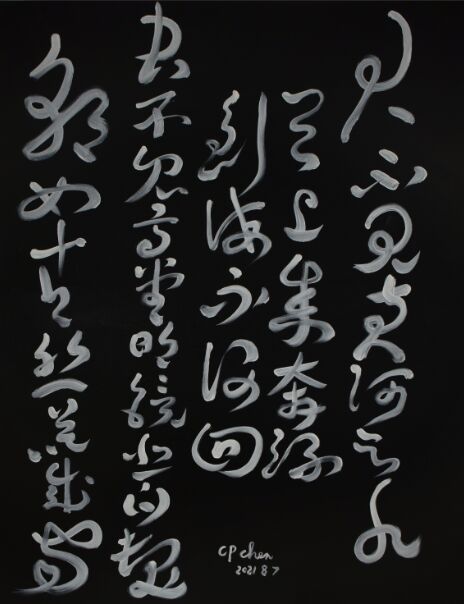 君不見黃河之水
天上來奔流
到海不復回
君不見高堂明鏡悲白髮
朝如青絲暮成雪
CP chen
2021 8 7